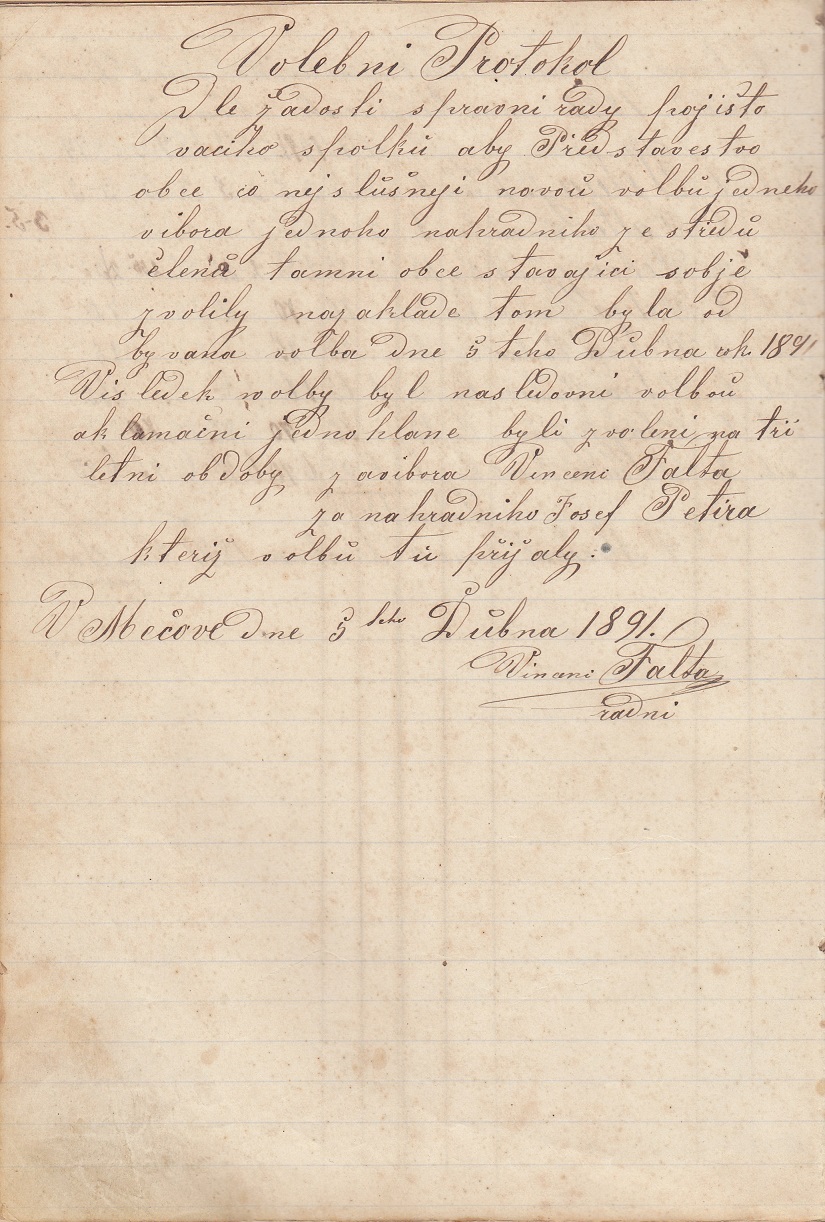 Volebni Protokol
Dle žadosti spravni rady pojišto
vaciho spolků aby Představestvo
obce co nejslůšneji novoů volbů jedneho
vibora jednoho nahradniho ze středů
členů tamni obce stavajici sobje
zvolily nazaklade tom byla od
byvana volba dne 5teho Důbna rok. 1891
Visledek wolby byl nasledovni volboů
aklamačni jednohlane byli zvoleni na tři
letni obdoby zavibora Vincenc Falta
za nahradniho Josef Petira
kteriž volbů tů přijaly.
V Mečove dne 5teho Důbna 1891.
Vincenc Falta
radni